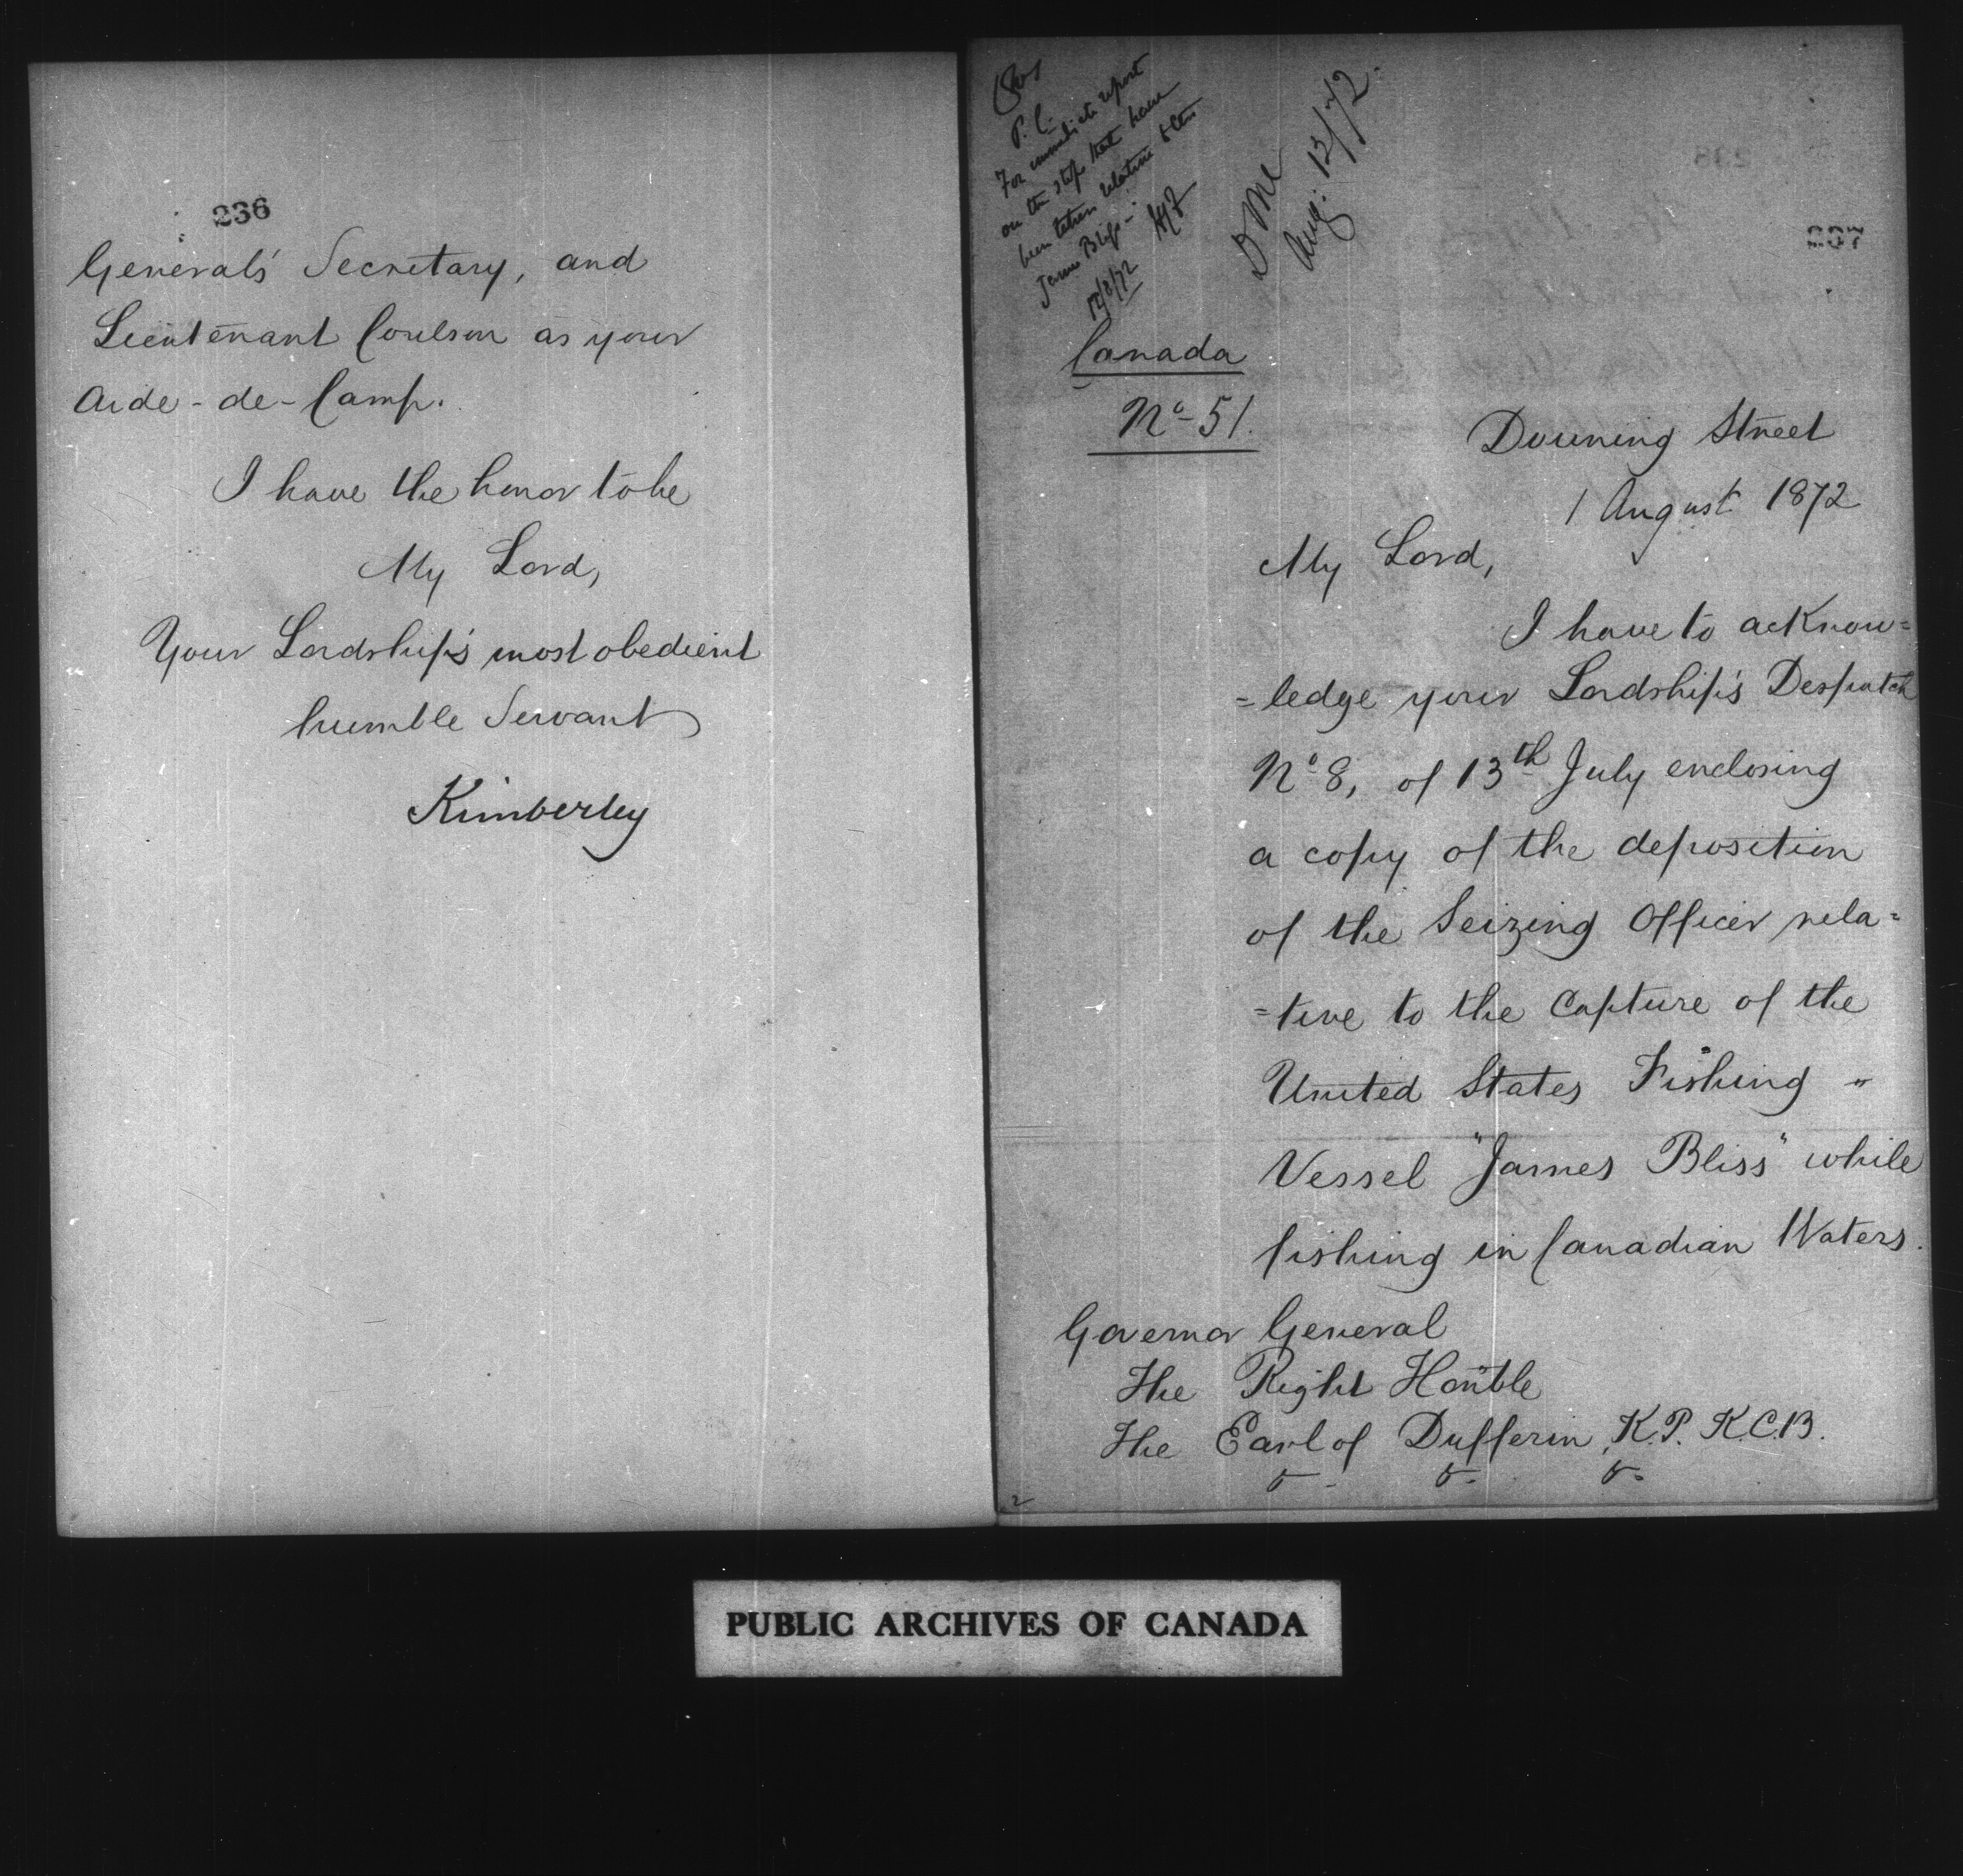 236
General's Secretary, and
Lieutenant Coulson as your
Aide-de-Camp.
I have the honor to be
My Lord,
Your Lordship's most obedient
humble Servant
Kimberley
P.C.
For immediate report
on the steps that have
been taken relative to the
James Bliss -
12/8/72
Aug: 12/72.
237
Canada
No- 51.
Downing Street
1 August 1872
My Lord,
I have to acknow=
=ledge your Lordship's Despatch
No 8, of 13th July enclosing
a copy of the deposition
of the Seizing Officer rela=
=tive to the Capture of the
United States Fishing
Vessel "James Bliss" while
fishing in Canadian Waters.
Governor General
The Right Honble
The Earl of Dufferin, K.P. K.C.B.
2
PUBLIC ARCHIVES OF CANADA